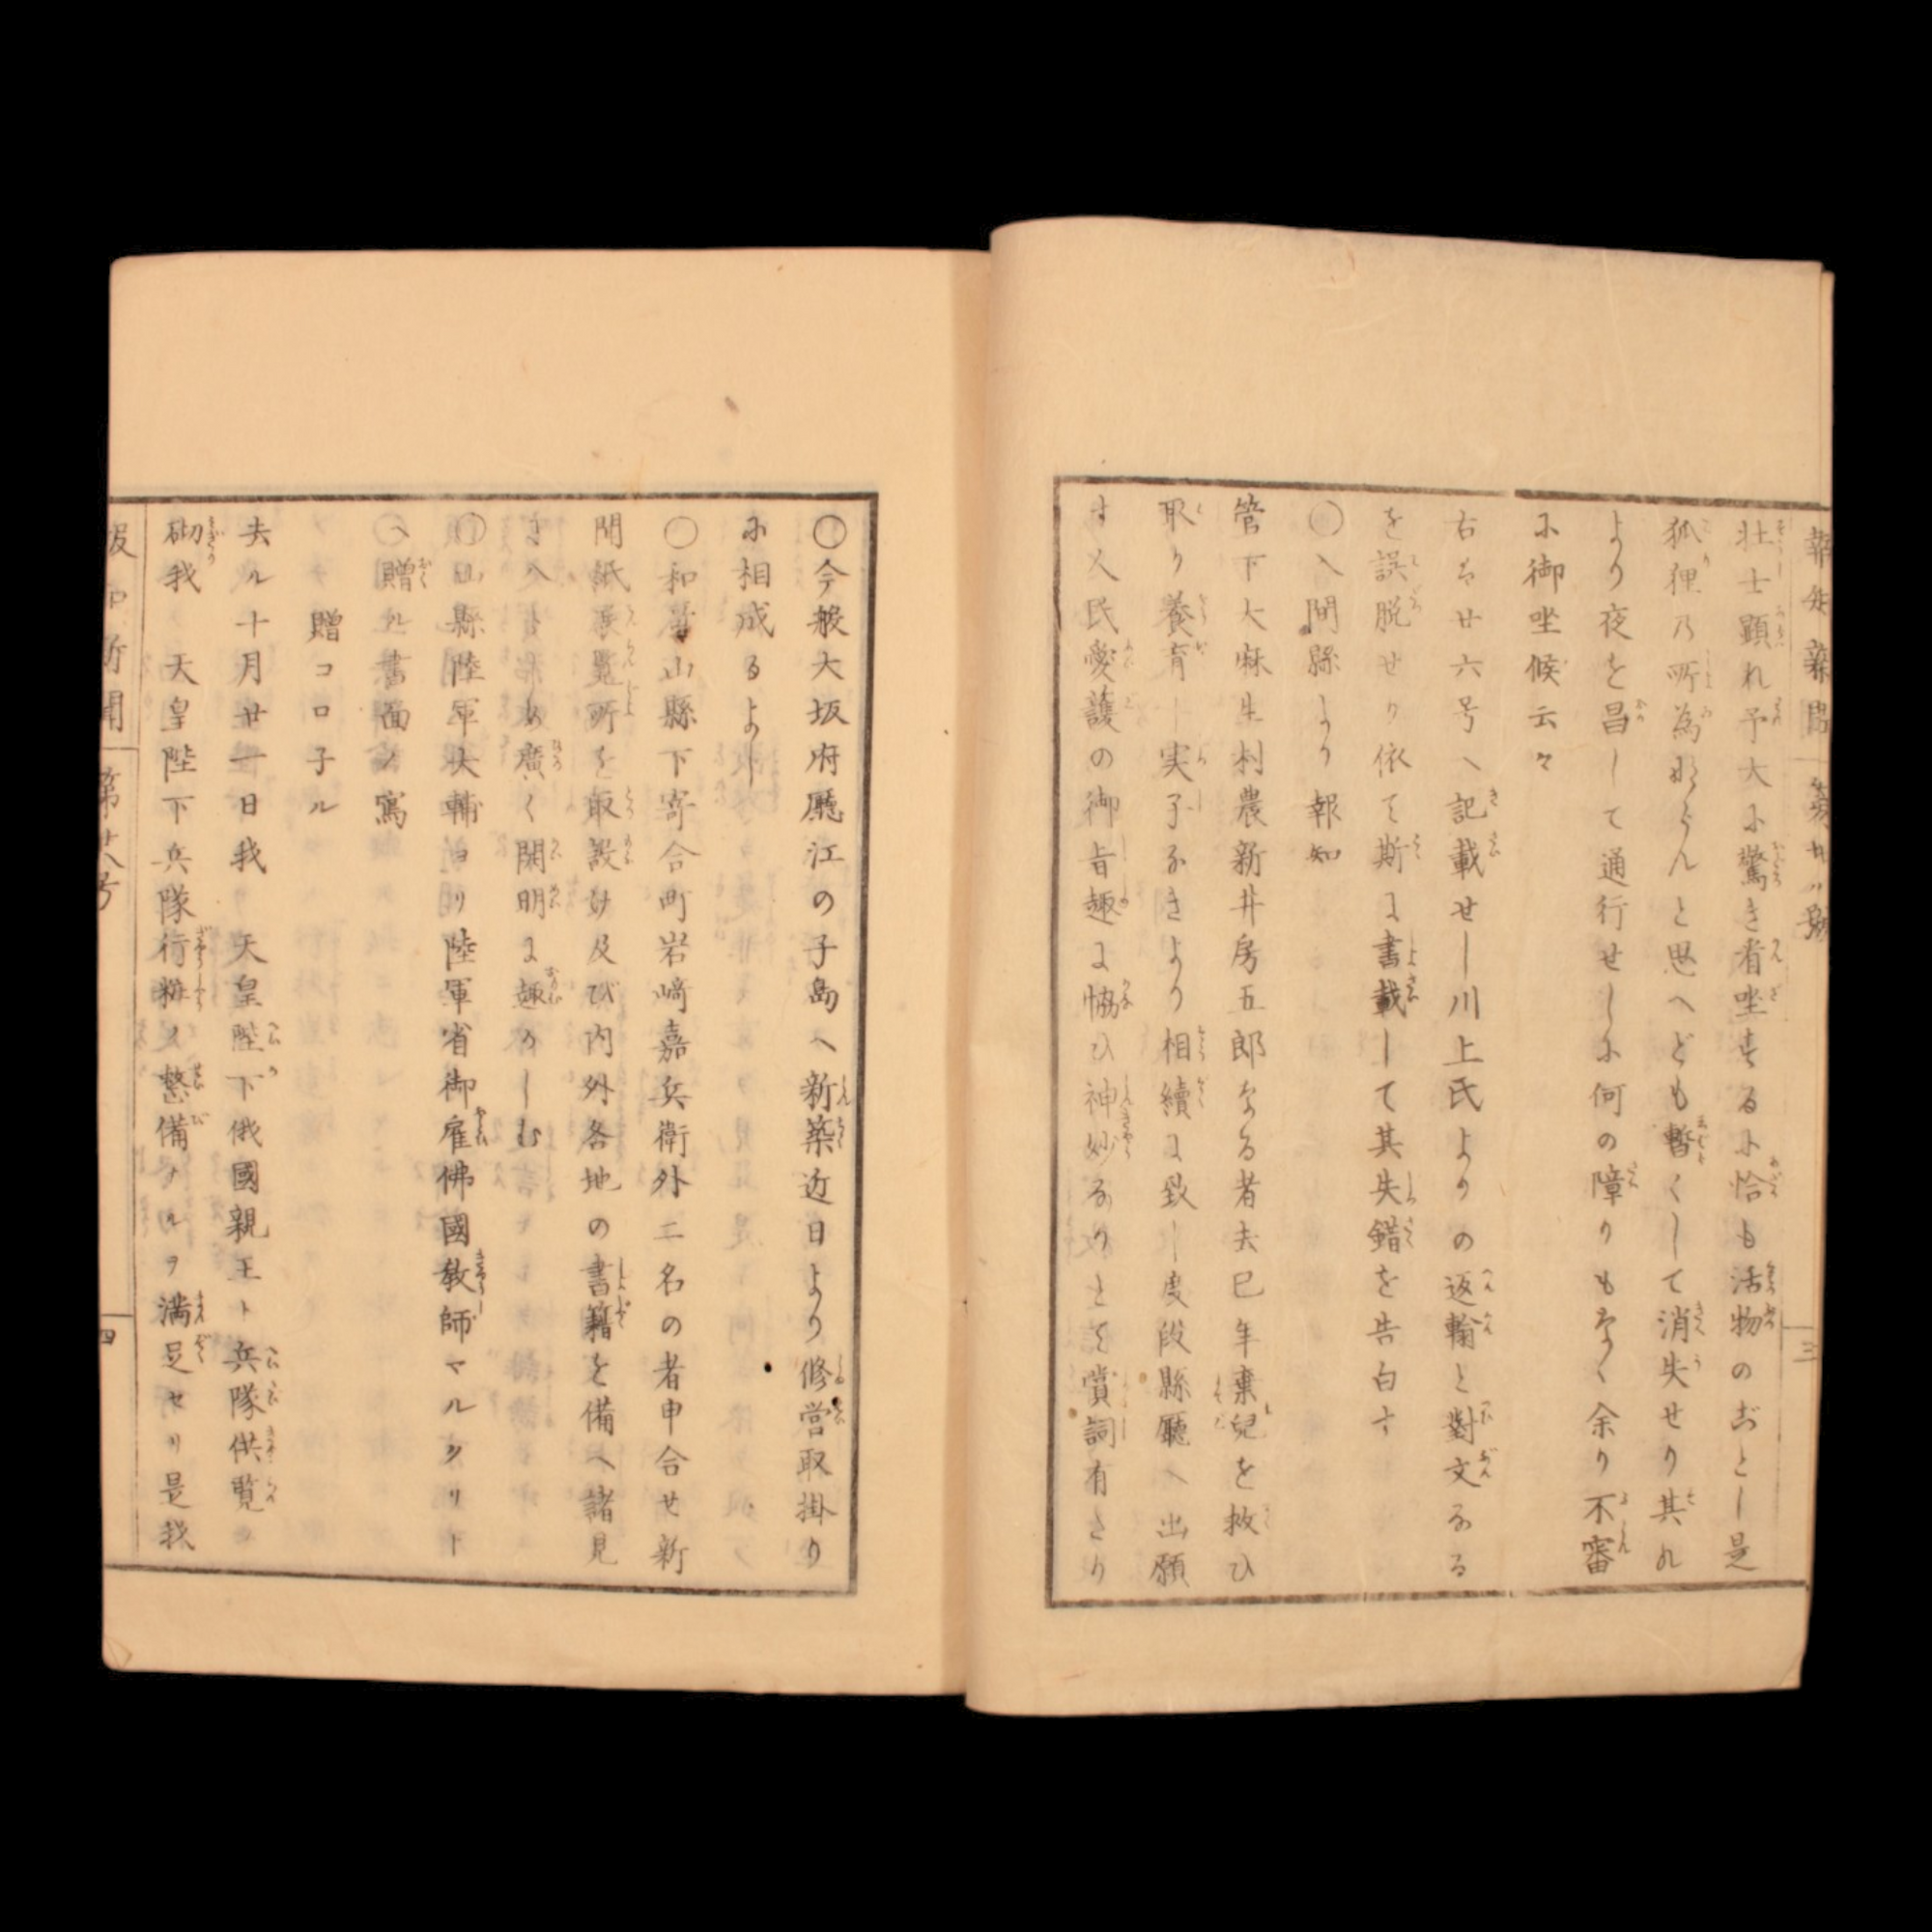 報知新聞 第廿八號 三
壮士顕れ予大に驚き着坐するに恰も活物のごとし是
狐狸乃所為ならんと思へども暫くして消失せり其れ
より夜を冒して通行せしに何の障りもなく余り不審
に御坐候云々
右は廿六号へ記載せし川上氏よりの返輸と對文なる
を誤脱せり依て斯に書載して其失錯を告白す
〇入間縣より報知
管下大麻生村農新井房五郎なる者去巳年棄兒を救ひ
取り養育し実子なきより相續に致し度段縣廳へ出願
す人民愛護の御旨趣に協ひ神妙なりとて賞詞有たり
〇今般大坂府廳江の子島へ新築近日より修営取掛り
に相成るよし
〇和哥山縣下寄合町岩﨑嘉兵衛外二名の者申合せ新
聞紙展覧所を取設け及び内外各地の書籍を備へ諸見
廣く開明に趣かしむ
〇山縣陸軍大輔ヨリ陸軍省御雇佛國教師マルクリー
へ贈ル書面ノ寫
贈コロ子ル
去ル十月廿一日我 天皇陛下俄國親王ト兵隊供覧ノ
砌我 天皇陛下兵隊行粧ノ整備ナルヲ満足セリ是我
報知新聞 第廿八号 四